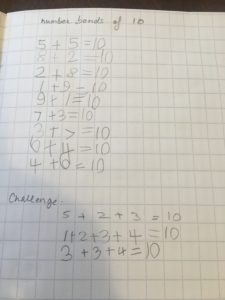 number bonds of 10
5 + 5 = 10
8 + 2 = 10
2 + 8 = 10
1 + 9 = 10
9 + 1 = 10
7 + 3 = 10
3 + 7 = 10
6 + 4 = 10
4 + 6 = 10
Challenge:
5 + 2 + 3 = 10
1 + 2 + 3 + 4 = 10
3 + 3 + 4 = 10